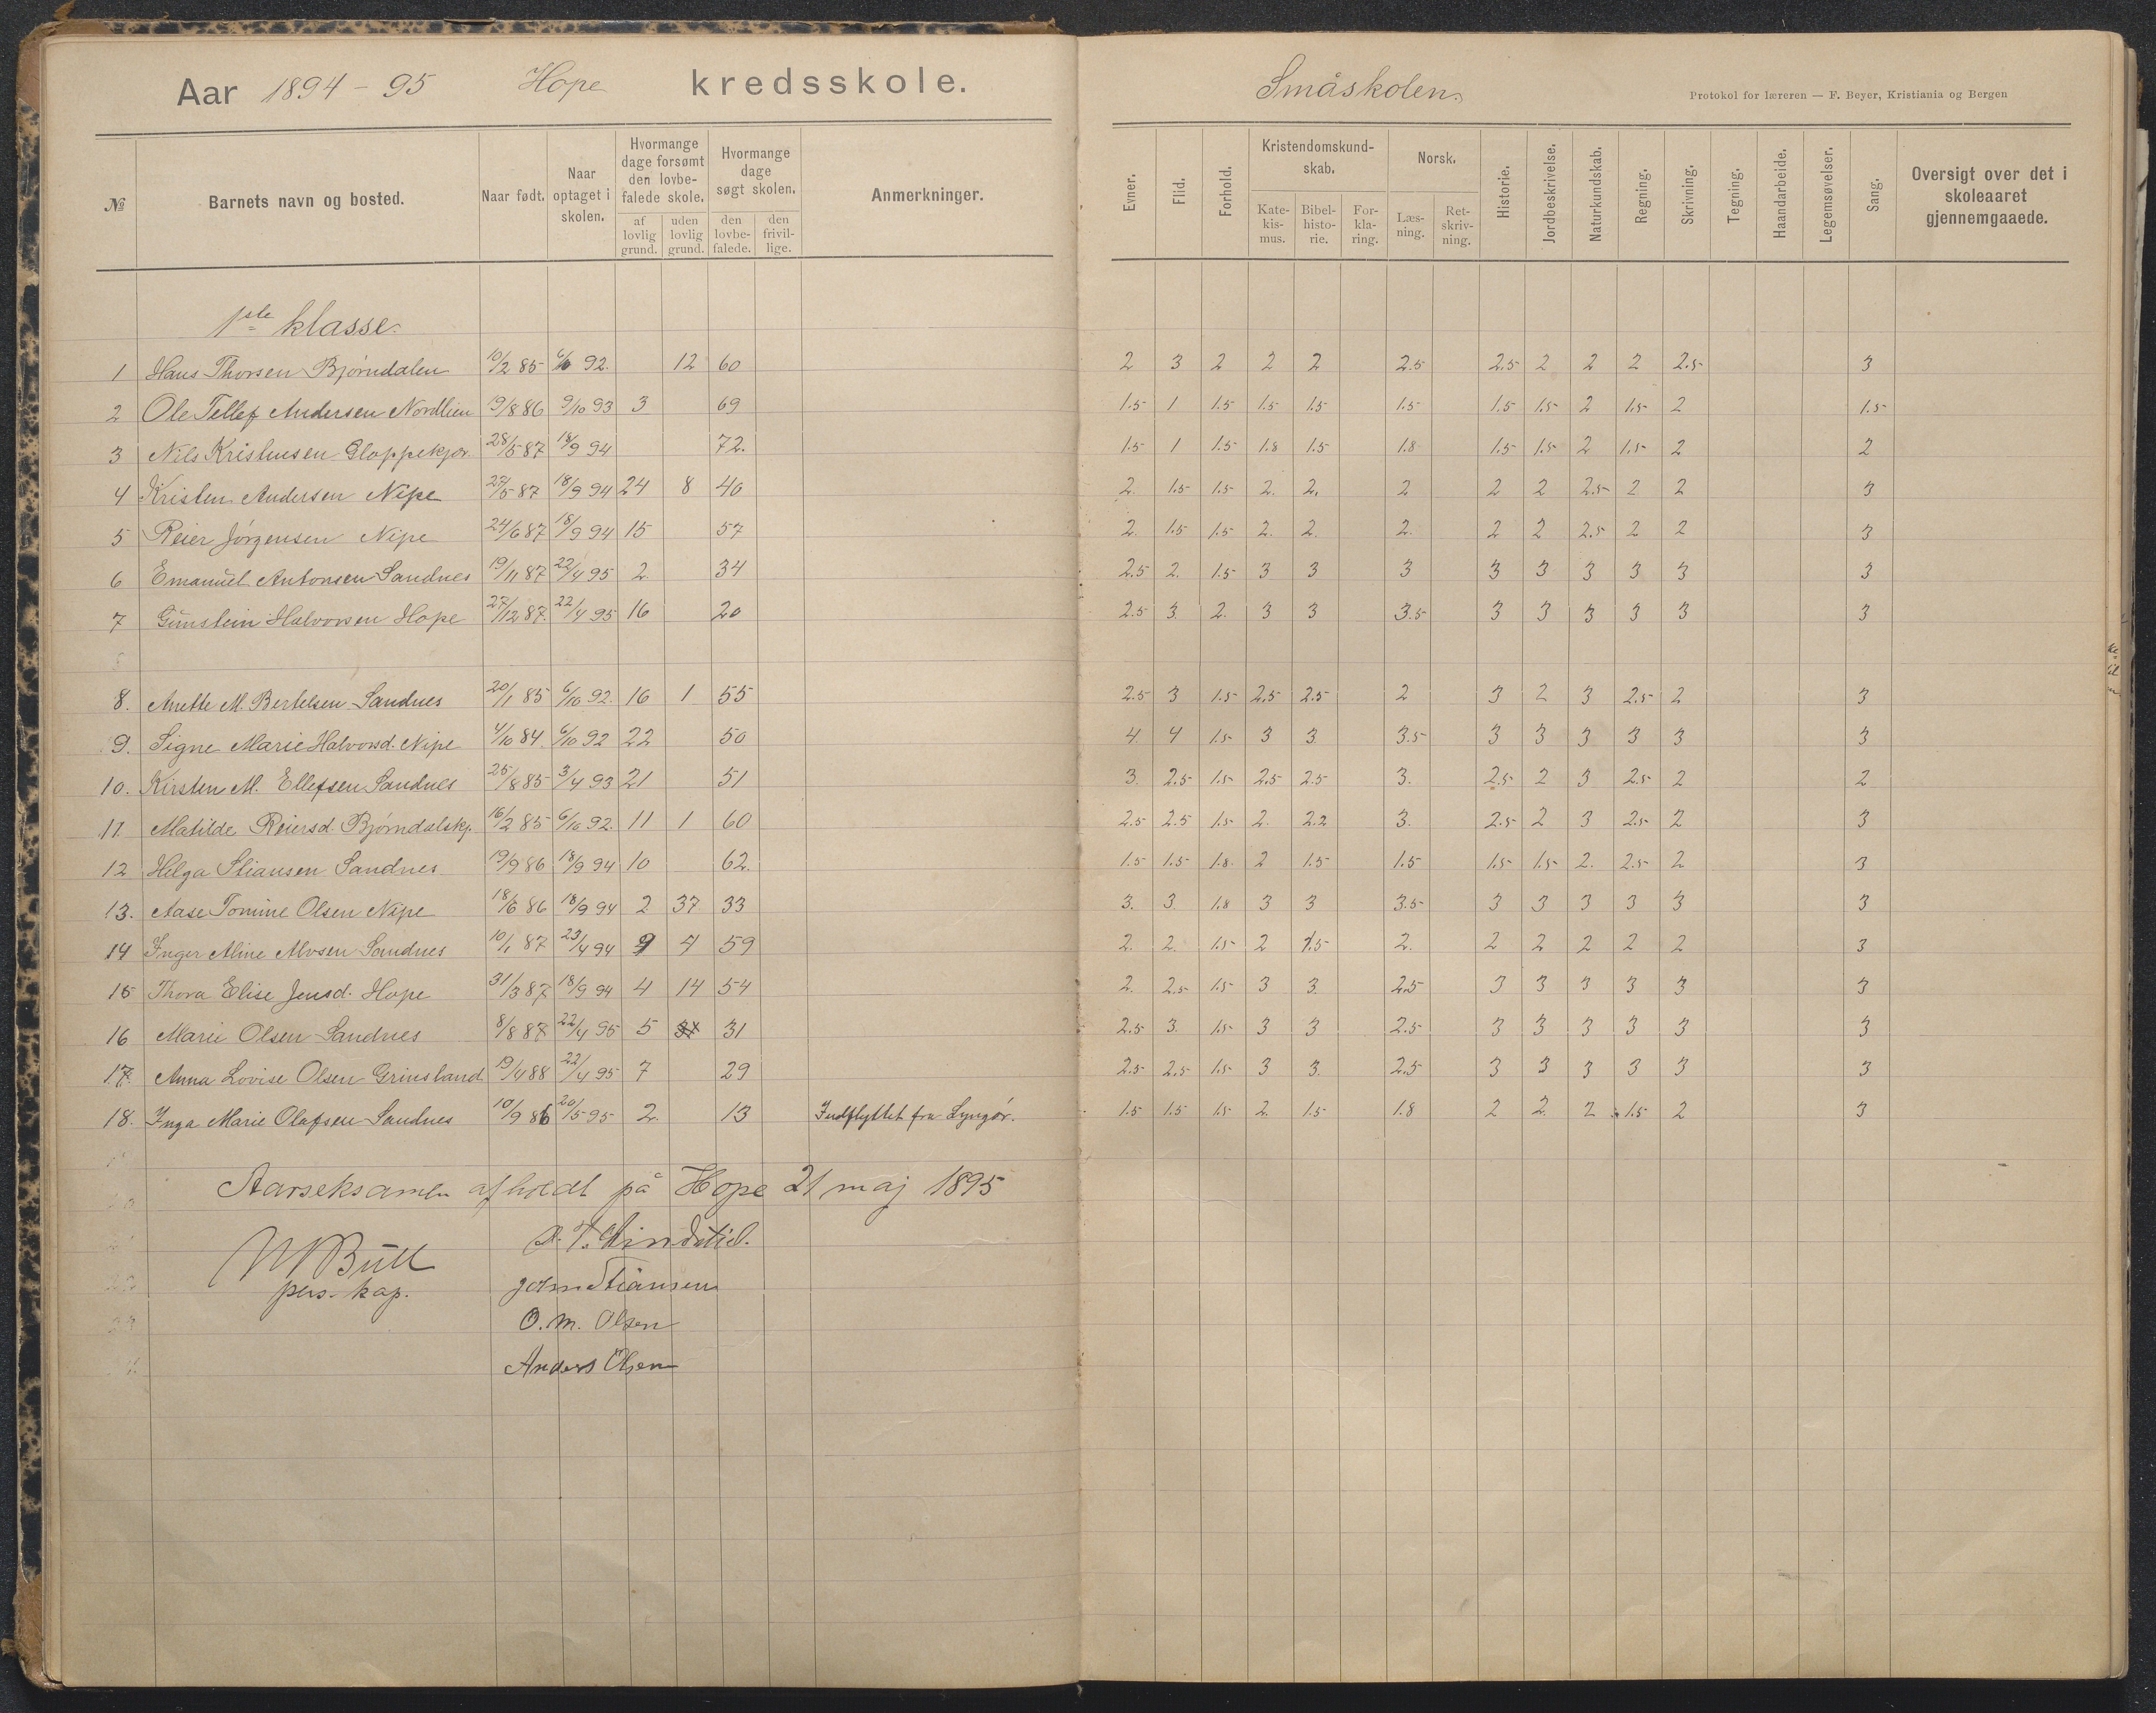 Aar 1894-95 Hope kredsskole.
№ Barnets navn og bosted. Naar født. Naar optaget i skolen. Hvormange dage forsømt den lovbefalede skole. af lovlig grund. uden lovlig grund. Hvormange dage søgt skolen. den lovbefalede. den frivillige. Anmerkninger.
1ste klasse.
1 Hans Thorsen Bjørndalen 10/2 85 6/10 92. 12 60
2 Ole Tellef Andersen Nordlien 19/8 86 9/10 93 3 69
3 Nils Kristensen Gloppekjær 28/5 87 18/9 94 72.
4 Kristen Andersen Nipe 27/5 87 18/9 94 24 8 40
5 Reier Jørgensen Nipe 24/6 87 18/9 94 15 57
6 Emanuel Antonsen Sandnes 19/11 87 22/4 95 2 34
7 Gunstein Halvorsen Hope 27/12 87. 22/4 95 16 20
8. Anette M. Bertelsen Sandnes 20/1 85 6/10 92. 16 1 55
9. Signe Marie Halvorsd. Nipe 4/10 84. 6/10 92 22 50
10. Kirsten M. Ellefsen Sandnes 25/8 85 3/4 93 21 51
11. Matilde Reiersd. Bjørndalskj. 16/2 85 6/10 92. 11 1 60
12 Helga Stiansen Sandnes 19/9 86 18/9 94 10 62.
13. Aase Tomine Olsen Nipe 18/6 86 18/9 94 2 37 33
14 Inger Aline Alvsen Sandnes 10/1 87 23/4 94 9 4 59
15 Thora Elise Jensd. Hope 31/3 87 18/9 94 4 14 54
16 Marie Olsen Sandnes 8/8 87 22/4 95 5 31
17. Anna Lovise Olsen Grinsland 19/4 88 22/4 95 7 29
18. Inga Marie Olafsen Sandnes 10/9 86 20/5 95 2. 13 Indflyttet fra Lyngør.
Aarseksamen afholdt på Hope 21 maj 1895
Bull
pers. kap.
John Stiansen
O. M. Olsen
Anders Olsen
Småskolen.
Protokol for læreren — F. Beyer, Kristiania og Bergen
Evner. Flid. Forhold. Kristendomskundskab. Katekismus. Bibelhistorie. Forklaring. Norsk. Læsning. Retskrivning. Historie. Jordbeskrivelse. Naturkundskab. Regning. Skrivning. Tegning. Haandarbeide. Legemsøvelser. Sang. Oversigt over det i skoleaaret gjennemgaaede.
2 3 2 2 2 2.5 2.5 2 2 2 2.5 3
1.5 1 1.5 1.5 1.5 1.5 1.5 1.5 2 1.5 2 1.5
1.5 1 1.5 1.8 1.5 1.8 1.5 1.5 2 1.5 2 2
2. 1.5 1.5 2. 2. 2 2 2 2.5 2 2 3
2. 1.5 1.5 2. 2. 2. 2 2 2.5 2 2 3
2.5 2. 1.5 3 3 3 3 3 3 3 3 3
2.5 3. 2. 3 3 3.5 3 3 3 3 3 3
2.5 3 1.5 2.5 2.5 2 3 2 3 2.5 2 3
4. 4 1.5 3 3 3.5 3 3 3 3 3 3
3. 2.5 1.5 2.5 2.5 3. 2.5 2 3 2.5 2 2
2.5 2.5 1.5 2. 2.2 3. 2.5 2 3 2.5 2 3
1.5 1.5 1.8. 2 1.5 1.5 1.5 1.5 2. 2.5 2 3
3. 3. 1.8 3 3 3.5 3 3 3 3 3 3
2. 2. 1.5 2 1.5 2. 2 2 2 2 2 3
2. 2.5 1.5 3 3. 2.5 3 3 3 3 3 3
2.5 3. 1.5 3 3 2.5 3 3 3 3 3 3
2.5 2.5 1.5 3 3. 2.5 3 3 3 3 3 3
1.5 1.5 1.5 2. 1.5 1.8 2 2. 2 1.5 2 3